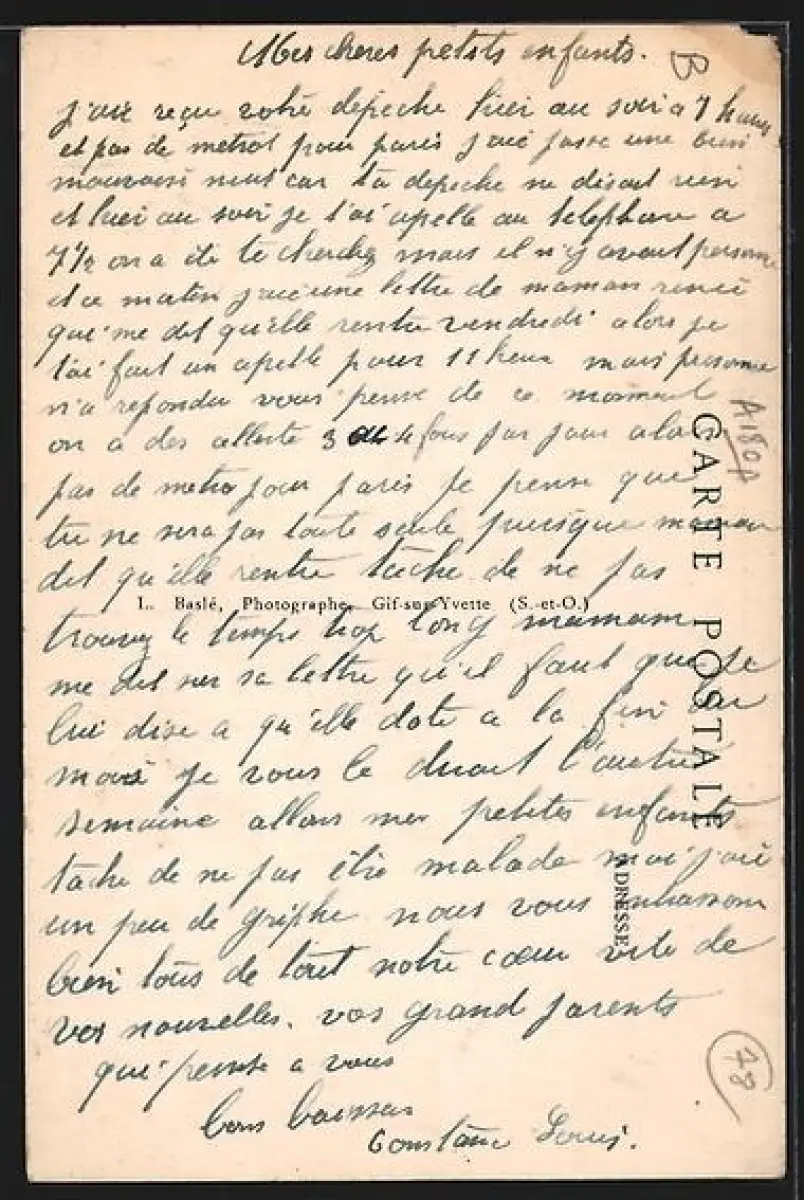 Mes cheres petits enfants.
B
j'ai reçu votre depeche hier au soir a 7 heures
et pas de metrot pour paris j'ai passe une bien
mauvaise nuit car ta depeche ne disait rien
et hier au soir je t'ai apelle au telephone a
7 1/2 on a ete te cherchez mais il n'y avait personne
et ce matin j'ai une lettre de maman
qui me dit qu'elle rentre vendredi alors je
t'ai fait un apelle pour 11 heure mais personne
n'a repondu vous pense de ce moment
on a des allerte 3 4 fois par jour alors
pas de metro pour paris je pense que
tu ne sera pas toute seule puisque maman
dit qu'elle rentre tache de ne pas
L. Baslé, Photographe, Gif-sur-Yvette (S.-et-O.)
trouvez le temps trop long mamam
me dit sa lettre qu'il faut que je
lui dise a qu'elle date a la fin du
mois je vous le dirait l'autre
semaine allons mes petites enfants
tache de ne pas être malade moi j'ai
un peu de griphe nous vous embrassons
bien tous de tout notre cœur vite de
vos nouvelles. vos grand parents
qui pense a vous
bons baissers
Constance Louis.
CARTE POSTALE
ADRESSE
A180A
78